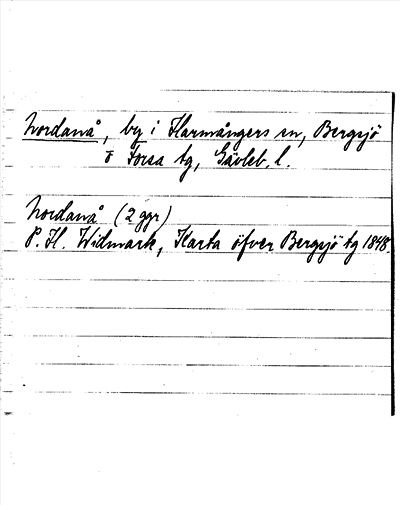 Nordanå, by i Harmångers sn, Bergsjö
o Forsa tg, Gävleb. l.
Nordanå (2 ggr)
P. H. Widmark, Karta öfver Bergsjö tg 1848.